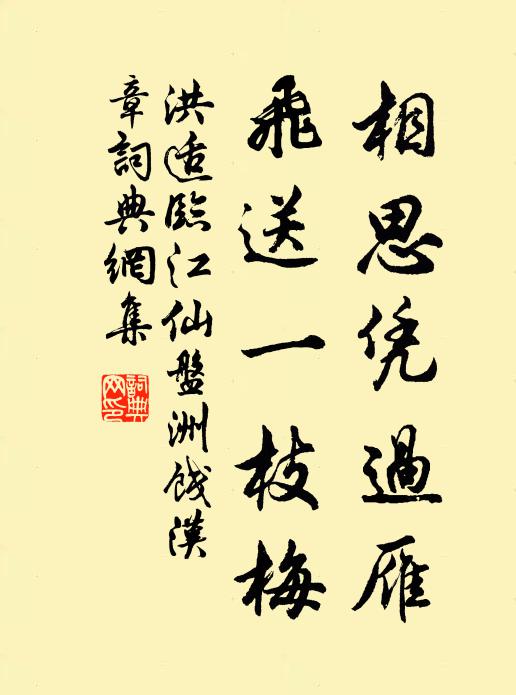 相思凭過雁
飛送一枝梅
洪适臨江仙盤洲餞漢
章詞典網集
詞典
网印